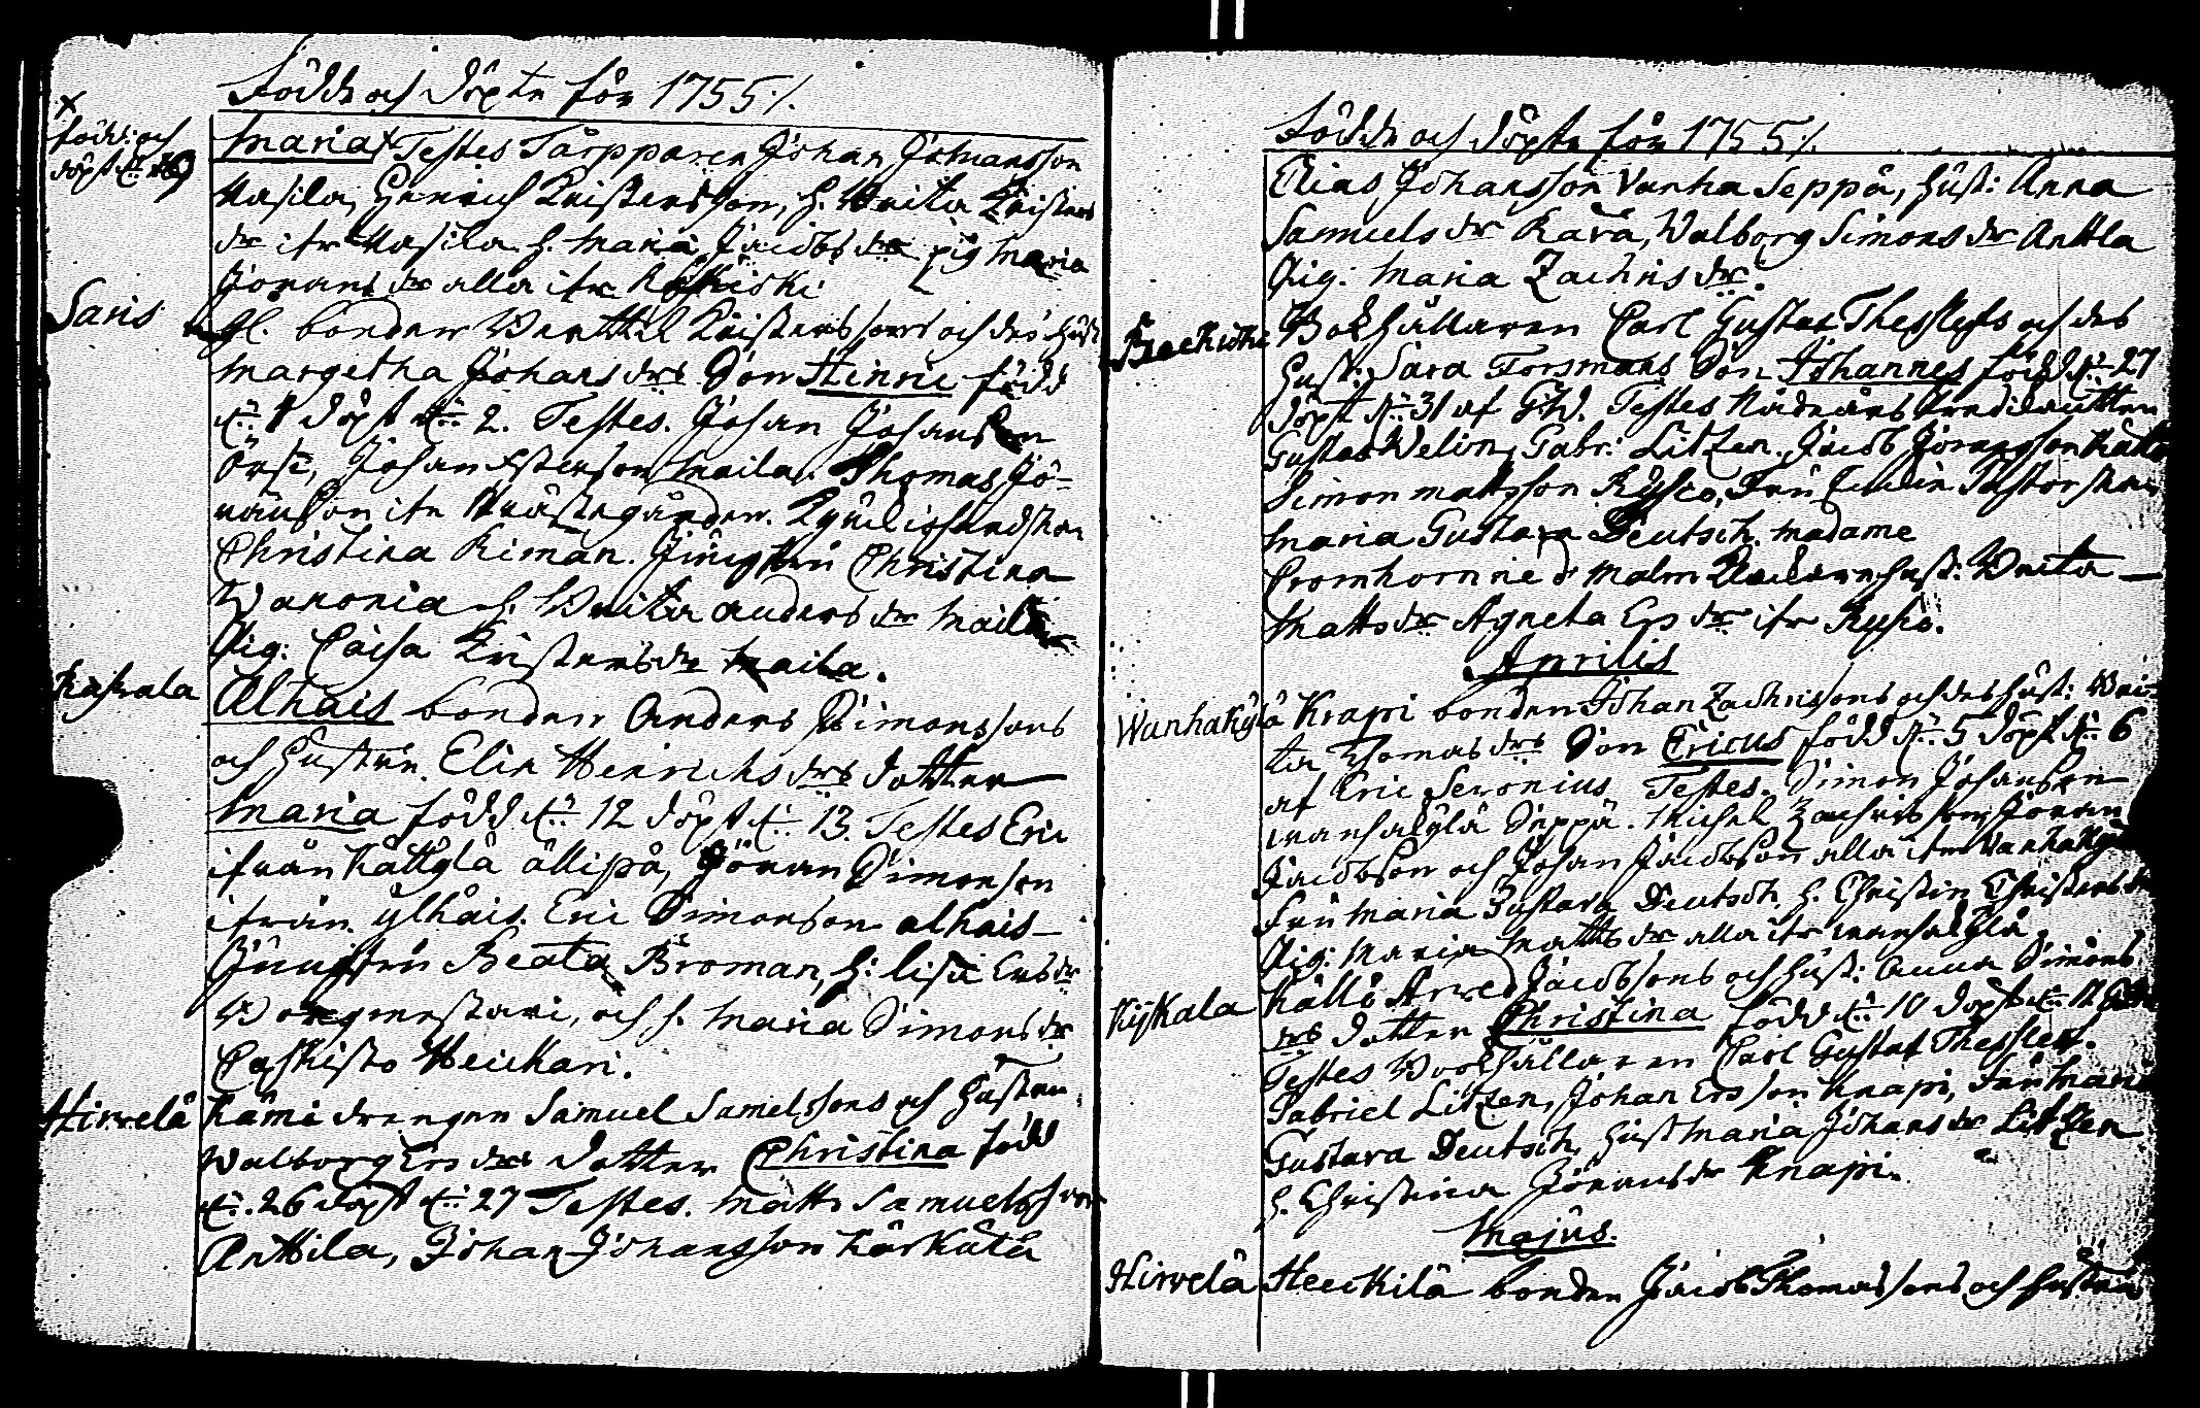 Födde och döpte för 1755 ./.
x
född: och
döpt d:
Maria x Testes Torpparen Johan Johansson
Masila, Henrich Kristersson, h. Brita Kristers
dr ifr Masila h. Maria Jacobs dr pig Maria
Jörans dr alla ifr
Saris
gl. bonden Berttil Kristerssons och des hust
Margetha Johans drs Son Hinric född
d: 1 döpt d: 2. Testes. Johan Johansson
Örsi, Johan Maila. Thomas Jö-
ransson ifr Prästegården.
Christina Riman. Jungfru Christina
Wanonia h. Brita Anders dr Maila
Pig: Caisa Kristers dr Maila.
Kaskala
Alhais bonden Anders Simonssons
och hustrun. Elin Henrichs drs dotter
Maria född d: 12 döpt d: 13. Testes Eric
ifrån Kåttylä ållipå, Jöran Simonson
ifrån ylhais. Eric Simonson alhais
Jungfru Beata Broman, h: Lisa Ers dr
och h. Maria Simons dr
Heickari.
Hirvelä
Kämi drengen Samuel Samelssons och hustru
Walborg Ers drs dotter Christina född
d: 26 döpt d: 27 Testes. Matts Samuelsson
Anttila, Johan Johansson Kärkutå
Födde och döpte för 1755 ./.
Elias Johansson Vanha Seppä, hust: Anna
Samuels dr Kavå, Walborg Simons dr Anttla
Pig: Maria Zachris dr.
Bokhållaren Carl Gustaf Thesleffs och des
hust: Sara Forsmans Son Johannes född d: 27
döpt d: 31 af G.W. Testes
Gustaf Welin, Gabr: Litzen. Jacob Jöransson
Simon Mattsson Rysco, Fru Pastorskan
Maria Gustava Deutsch. Madame
Cromhorn née Malm hust: Brita
Matts dr Agneta Ers dr ifr Rysco.
Aprilis
Wanhakylä
Krapi bonden Johan Zachrissons och des hust: Bri-
ta Thomas drs Son Ericus född d: 5 döpt d: 6
af Eric Seronius. Testes. Simon Johansson
wanhakylä Seppä. Michel Zachrisson, Jöran
Jacobson och Johan Jacobson alla ifr Wanhakylä
Fru Maria Gustava Deutsch, h. Christin Christers dr
Pig: Maria Matts dr alla ifr wanhakylä
Kyskala
Källö Arved Jacobssons och hust: Anna Simons
drs dotter Christina född d: 10 döpt d: 12
Testes Bokhållaren Carl Gustaf Thesleff.
Gabriel Litzen, Johan Ersson Knapi, Fru Maria
Gustava Deutsch, hust Maria Johans dr Litzen
h. Christina Jörans dr Knapi.
Majus.
Hirvelä
Heickilä bonden Jacob Thomassons och hustrus